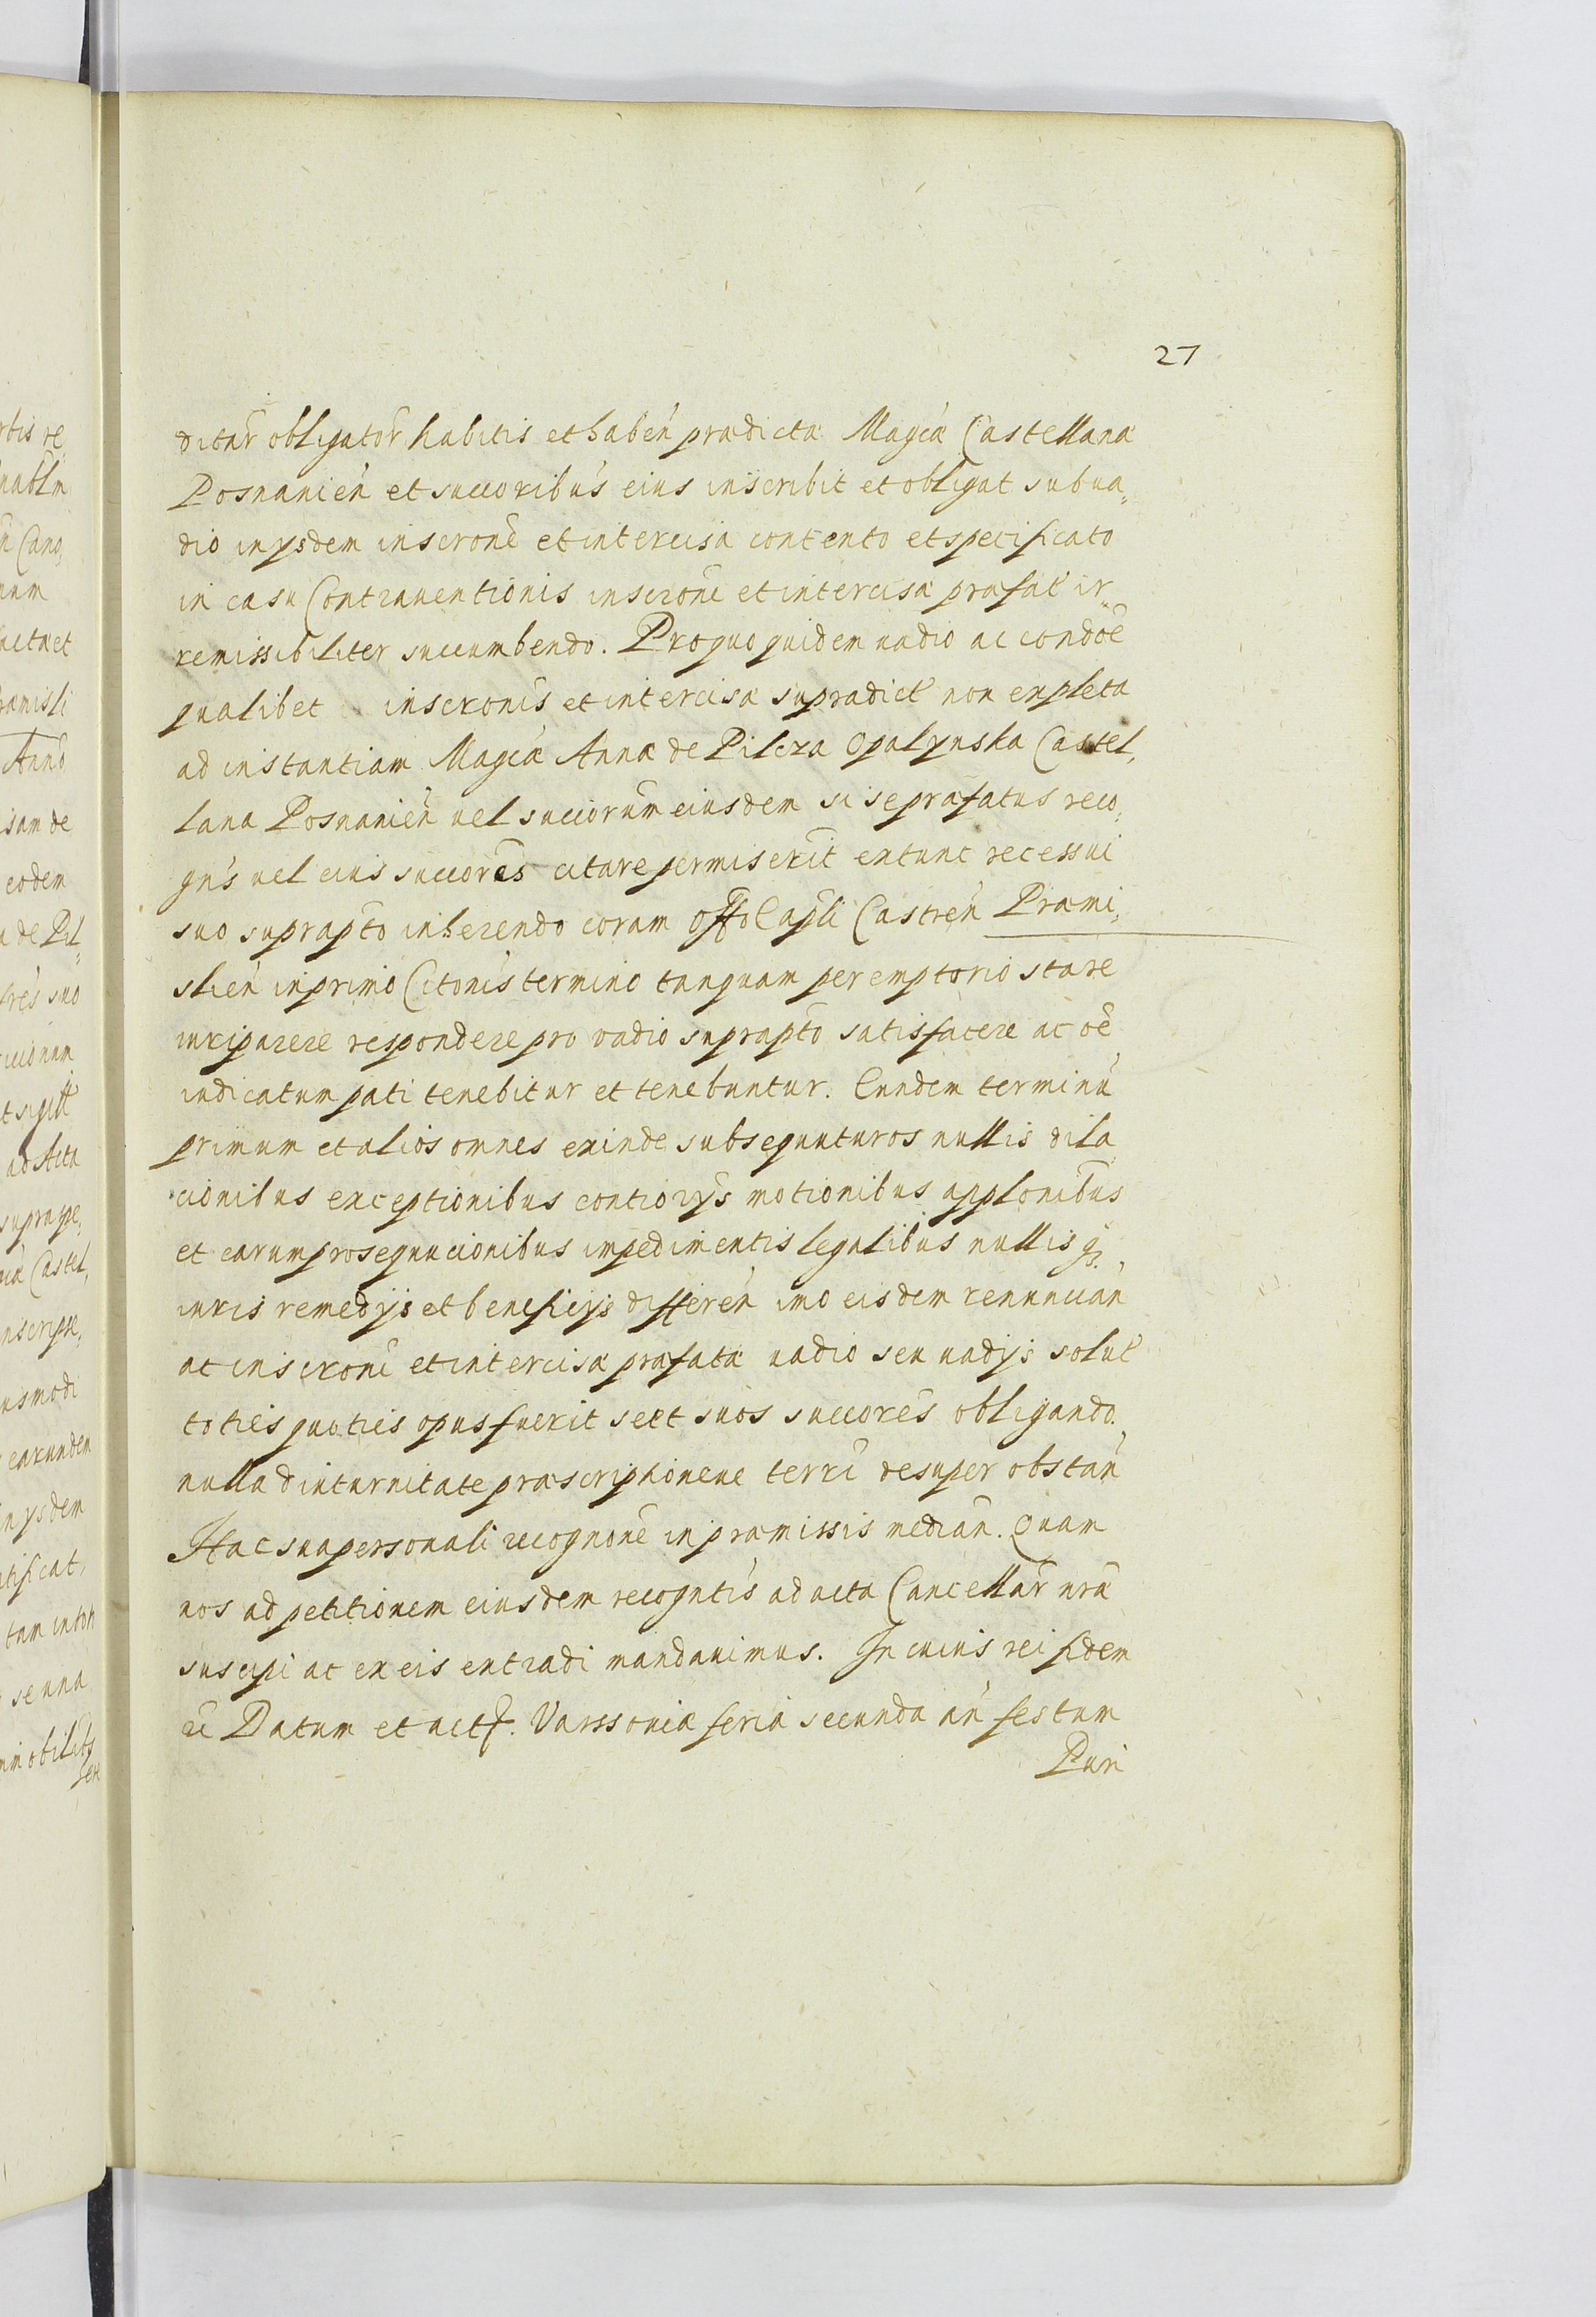 27
ditar̃ obligator̃ habitis et haben̄ prædictæ Mag̃cæ Castellanæ
Posnanien̄ et succoribus̃ eius inscribit et obligat sub va„
dio in ysdem inscrone͂ et intercisa contento et specificato
in casu Contrauentionis inscroni͂ et intercisæ præfat̃ ir„
remissibiliter succumbendo. Pro quo quidem vadio ac condoẽ
qualibet inscronis͂ et intercisæ supradict̃ non expleta
ad instantiam Mag̃cæ Annæ de Pilcza Opalynska Castel„
lanæ Posnanien̄ vel succorum͂ eiusdem si se præfatus reco„
gns̃ vel eius succores͂ citare permiserit extunc recessui
suo suprapto͂ inherendo coram offo͂ Capli͂ Castren̄ Præmi„
slien̄ in primo Citonis͂ termino tanquam peremptorio stare
iuri parere respondere pro vadio suprapto͂ satisfacere ac oẽ
iudicatum pati tenebitur et tenebuntur. Eundem terminū
primum et alios omnes exinde subsequuturos nullis dila„
cionibus exceptionibus contiorys͂ motionibus applonibus͂
et earum prosequucionibus impedimentis legalibus nullisq3,
iuris remedys et beneficys differen̄ imo eisdem renuncian̄
ac inscroni͂ et intercisæ præfatæ vadio seu vadys solut̃
toties quoties opus fuerit seet suos succores͂ obligando,
nulla diuturnitate præscriptioneue terri͂ desuper obstan̄
Hac sua personali recognone͂ in præmissis median̄. Quam
nos ad petitionem eiusdem recogntis͂ ad acta Cancellar̃ nræ͂
suscipi ac ex eis extradi mandauimus. In cuius rei fidem
rc Datum et act̃. Varssouiæ feria secunda an̄ festum
Puri